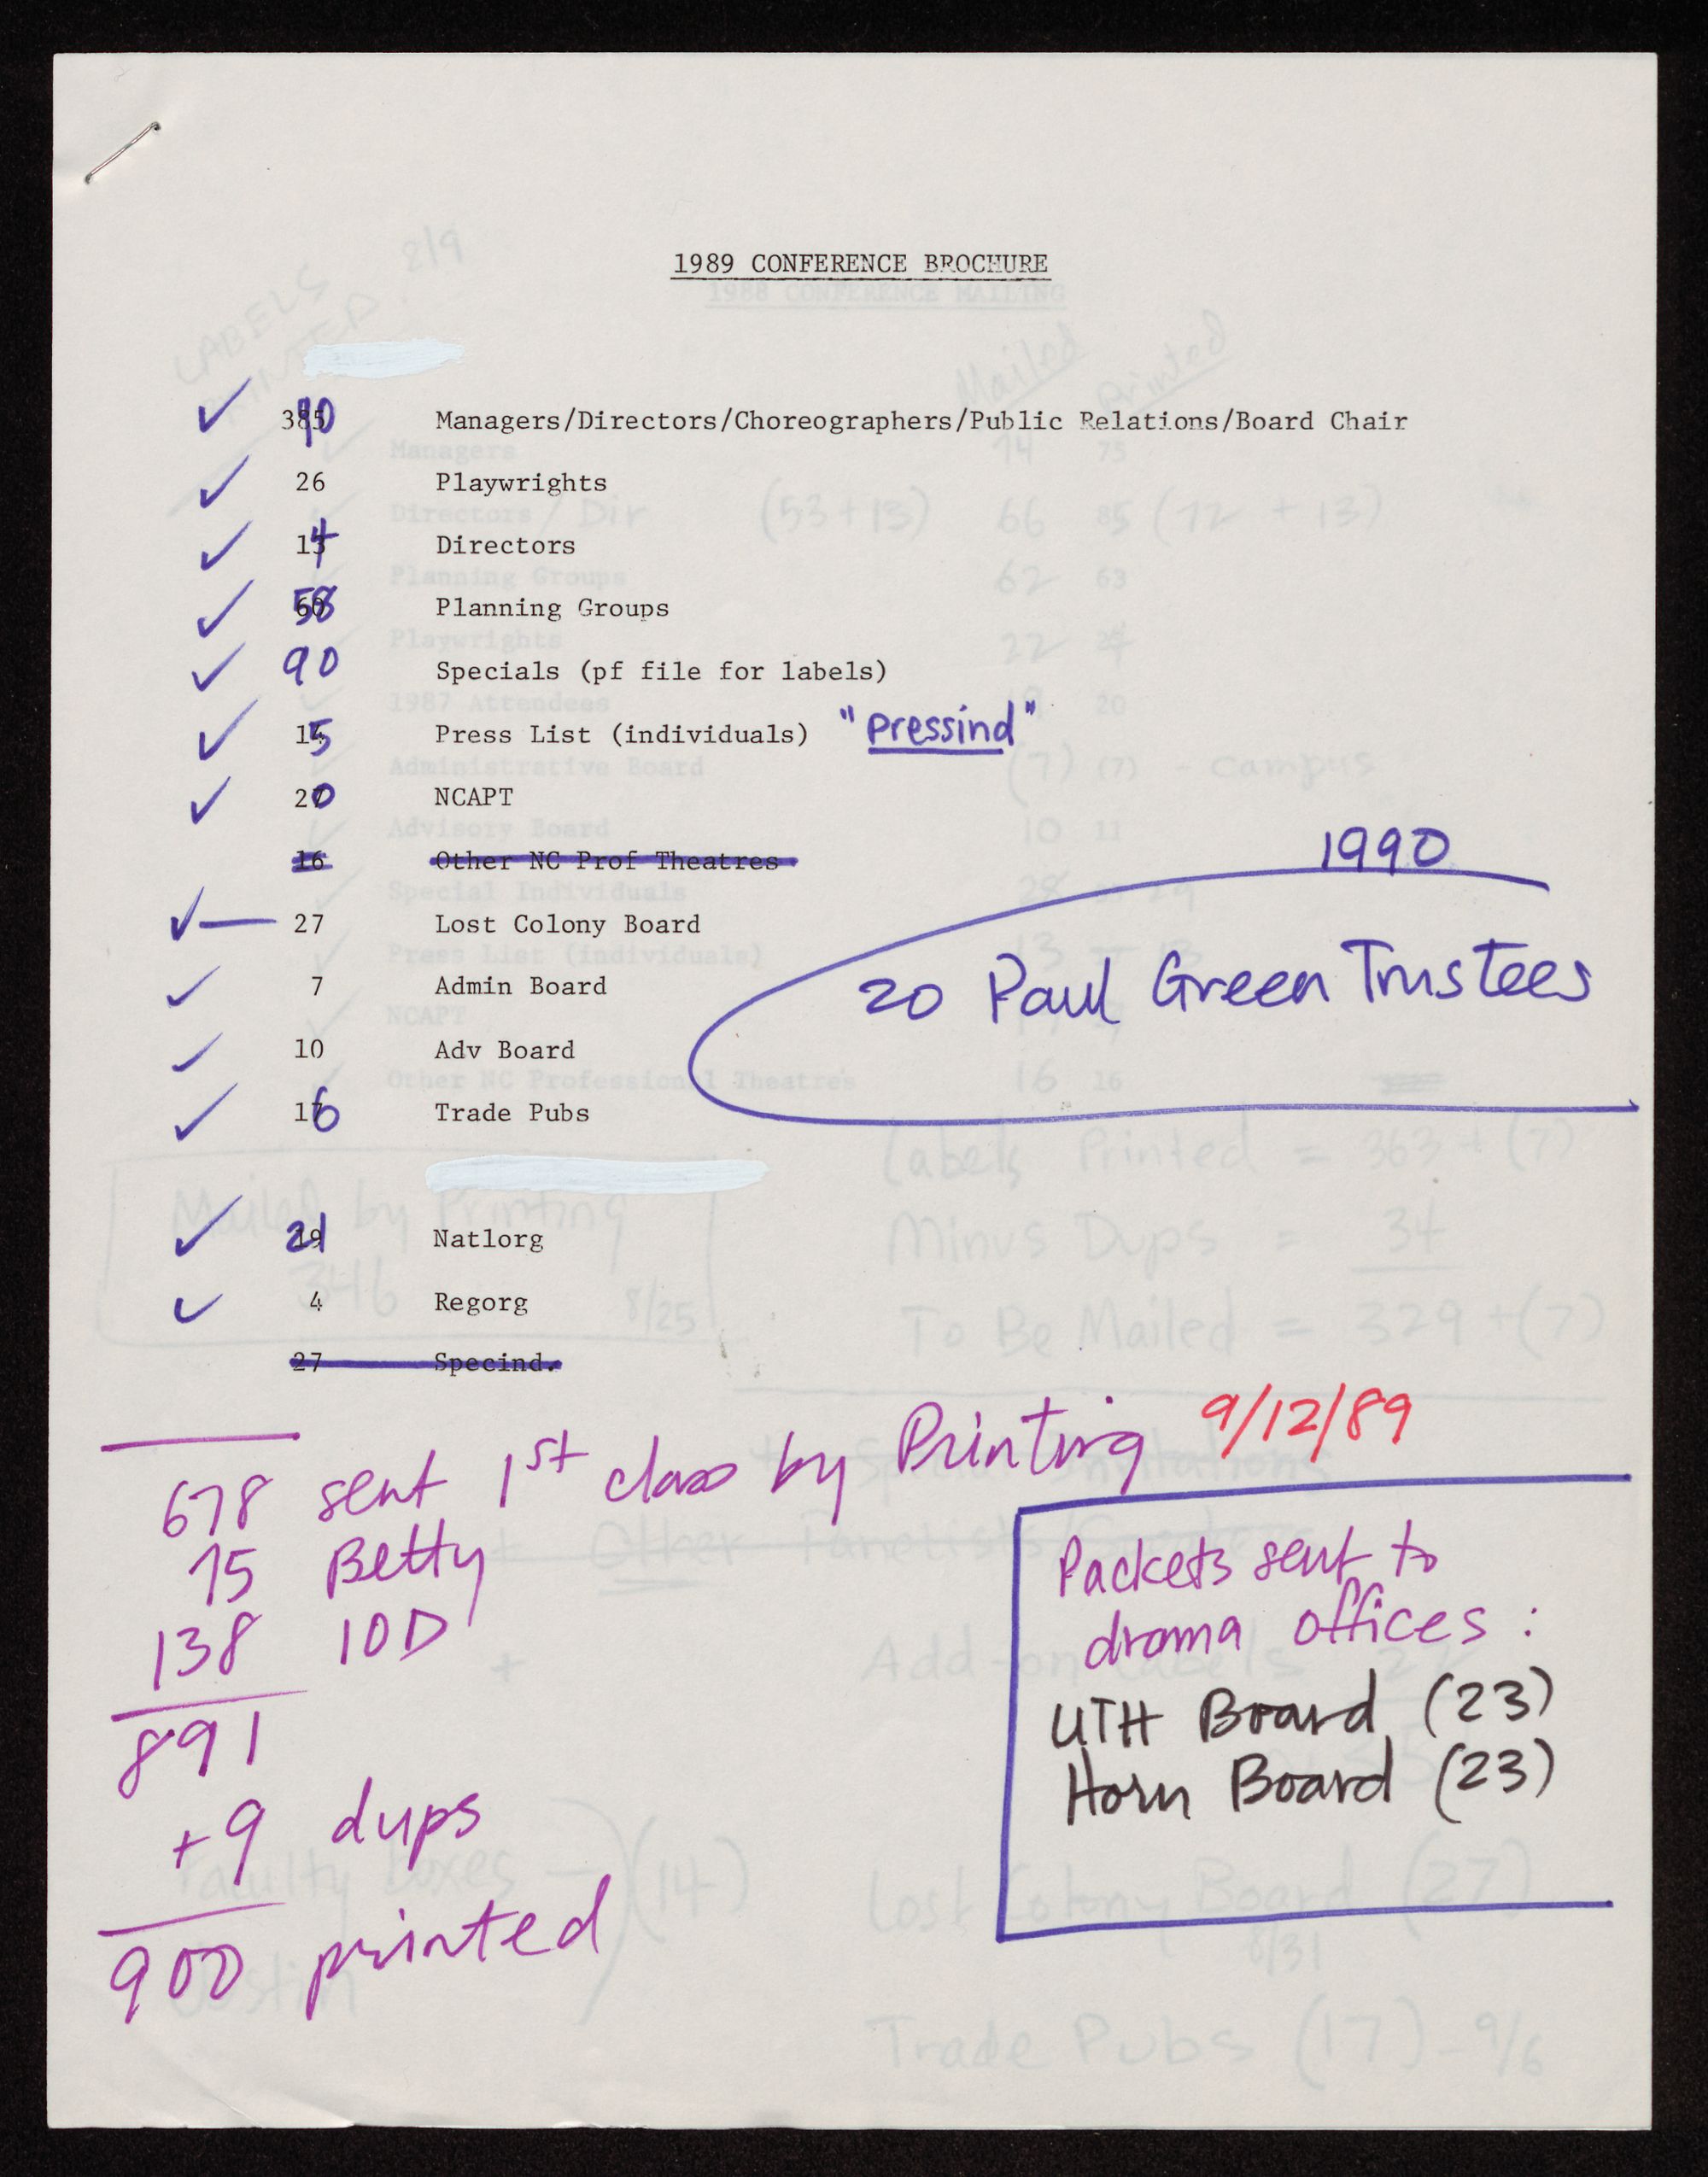 1989 CONFERENCE BROCHURE
✓ 390 Managers/Directors/Choreographers/Public Relations/Board Chair
✓ 26 Playwrights
✓ 14 Directors
✓ 58 Planning Groups
✓ 90 Specials (pf file for labels)
✓ 15 Press List (individuals) "pressind"
✓ 20 NCAPT
16 Other NC Prof Theatres
1990
✓— 27 Lost Colony Board
20 Paul Green Trustees
✓ 7 Admin Board
✓ 10 Adv Board
✓ 16 Trade Pubs
✓ 21 Natlorg
✓ 4 Regorg
27 Specind.
678 sent 1st class by Printing 9/12/89
75 Betty
138 10D
891
+9 dups
900 printed
Packets sent to
drama offices :
UTH Board (23)
Horn Board (23)